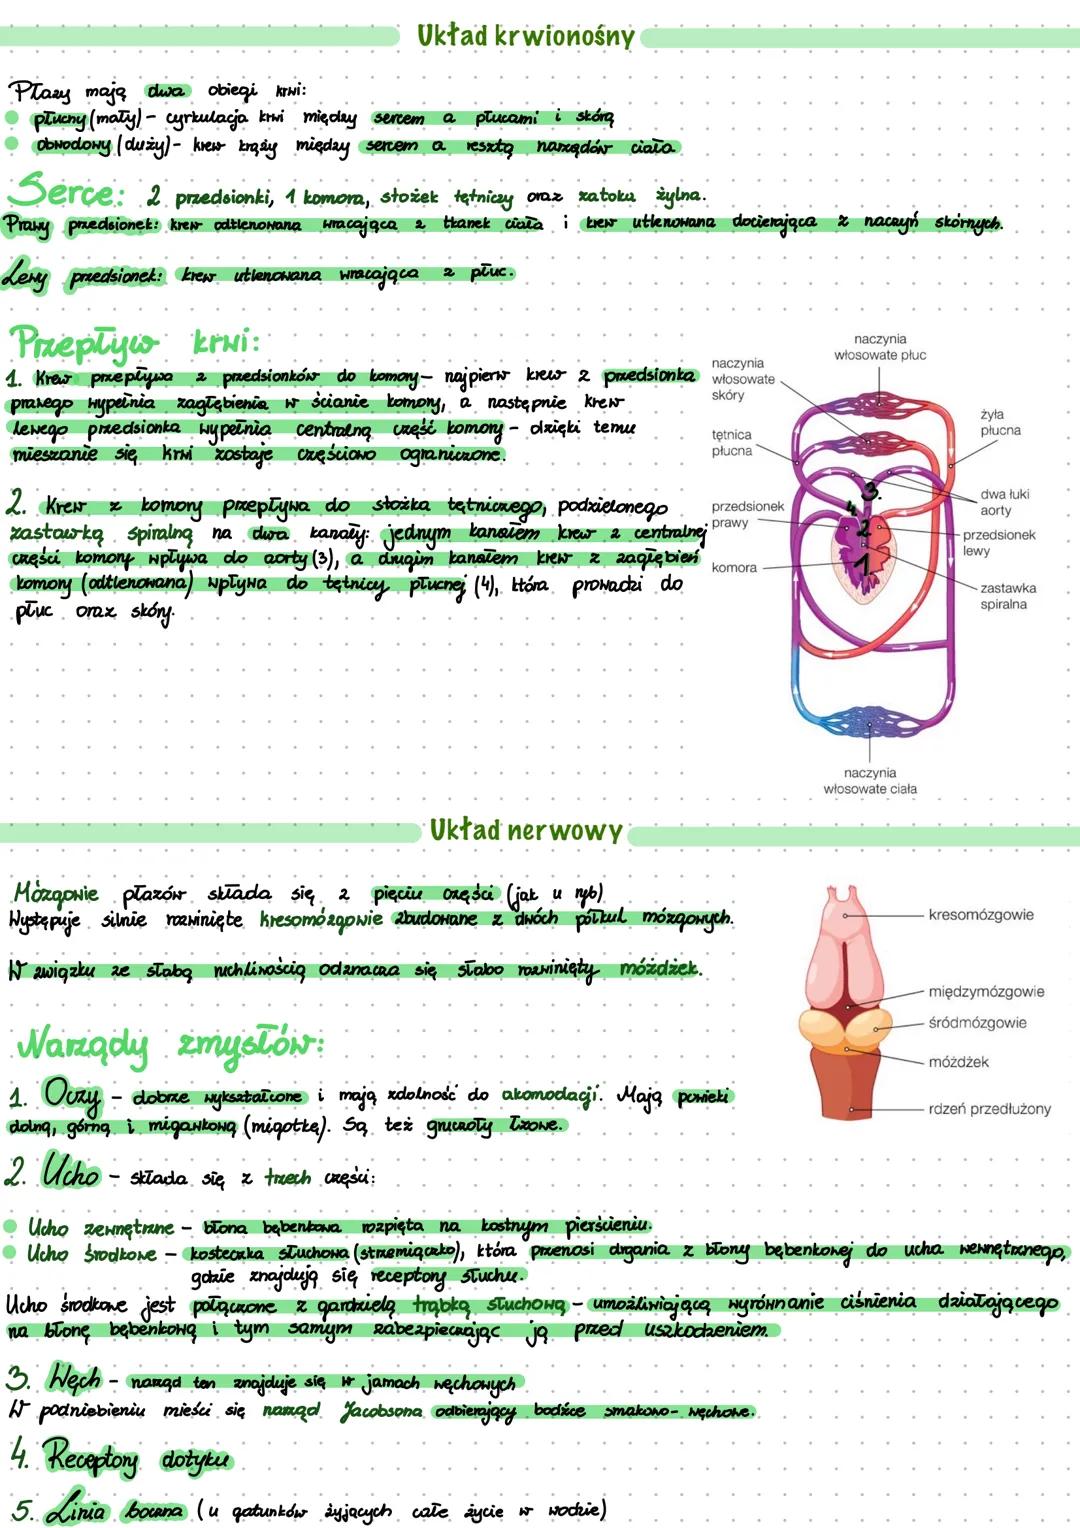 Układ krwionośny
Płazy mają dwa obiegi krwi:
płucny (mały) - cyrkulacja krwi między sercem a płucami i skórą
obwodowy (duży) - krew krąży między sercem a resztą narządów ciała
Serce: 2 przedsionki, 1 komora, stożek tętniczy oraz zatoka żylna.
Prawy przedsionek: krew odtlenowana wracająca z tkanek ciała i krew utlenowana docierająca z naczyń skórnych.
Lewy przedsionek: krew utlenowana wracająca z płuc.
Przepływ krwi:
1. Krew przepływa z przedsionków do komory - najpierw krew z przedsionka
prawego wypełnia zagłębienia w ścianie komory, a następnie krew
lewego przedsionka wypełnia centralną część komory - dzięki temu
mieszanie się krwi zostaje częściowo ograniczone.
2. Krew z komory przepływa do stożka tętniczego, podzielonego
zastawką spiralną na dwa kanały: jednym kanałem krew z centralnej
części komory wpływa do aorty (3), a drugim kanałem krew z zagłębień
komory (odtlenowana) wpływa do tętnicy płucnej (4), która prowadzi do
płuc oraz skóry.
naczynia
włosowate płuc
naczynia
włosowate
skóry
żyła
płucna
tętnica
płucna
dwa łuki
aorty
przedsionek
prawy
przedsionek
lewy
komora
zastawka
spiralna
3.
4.
2
1
naczynia
włosowate ciała
Układ nerwowy
Mózgowie płazów składa się z pięciu części (jak u ryb)
Występuje silnie rozwinięte kresomózgowie zbudowane z dwóch półkul mózgowych.
W związku ze słabą ruchliwością odznacza się słabo rozwinięty móżdżek.
kresomózgowie
międzymózgowie
śródmózgowie
móżdżek
rdzeń przedłużony
Narządy zmysłów:
1. Oczy - dobrze wykształcone i mają zdolność do akomodacji. Mają powieki
dolną, górną i migawkową (migotkę). Są też gruczoły łzowe.
2. Ucho - składa się z trzech części:
Ucho zewnętrzne - błona bębenkowa rozpięta na kostnym pierścieniu.
Ucho środkowe - kosteczka słuchowa (strzemiączko), która przenosi drgania z błony bębenkowej do ucha wewnętrznego,
gdzie znajdują się receptory słuchu.
Ucho środkowe jest połączone z gardzielą trąbką słuchową - umożliwiającą wyrównanie ciśnienia działającego
na błonę bębenkową i tym samym zabezpieczając ją przed uszkodzeniem.
3. Węch - narząd ten znajduje się w jamach węchowych
W podniebieniu mieści się narząd Jacobsona odbierający bodźce smakowo-węchowe.
4. Receptory dotyku
5. Linia boczna (u gatunków żyjących całe życie w wodzie)